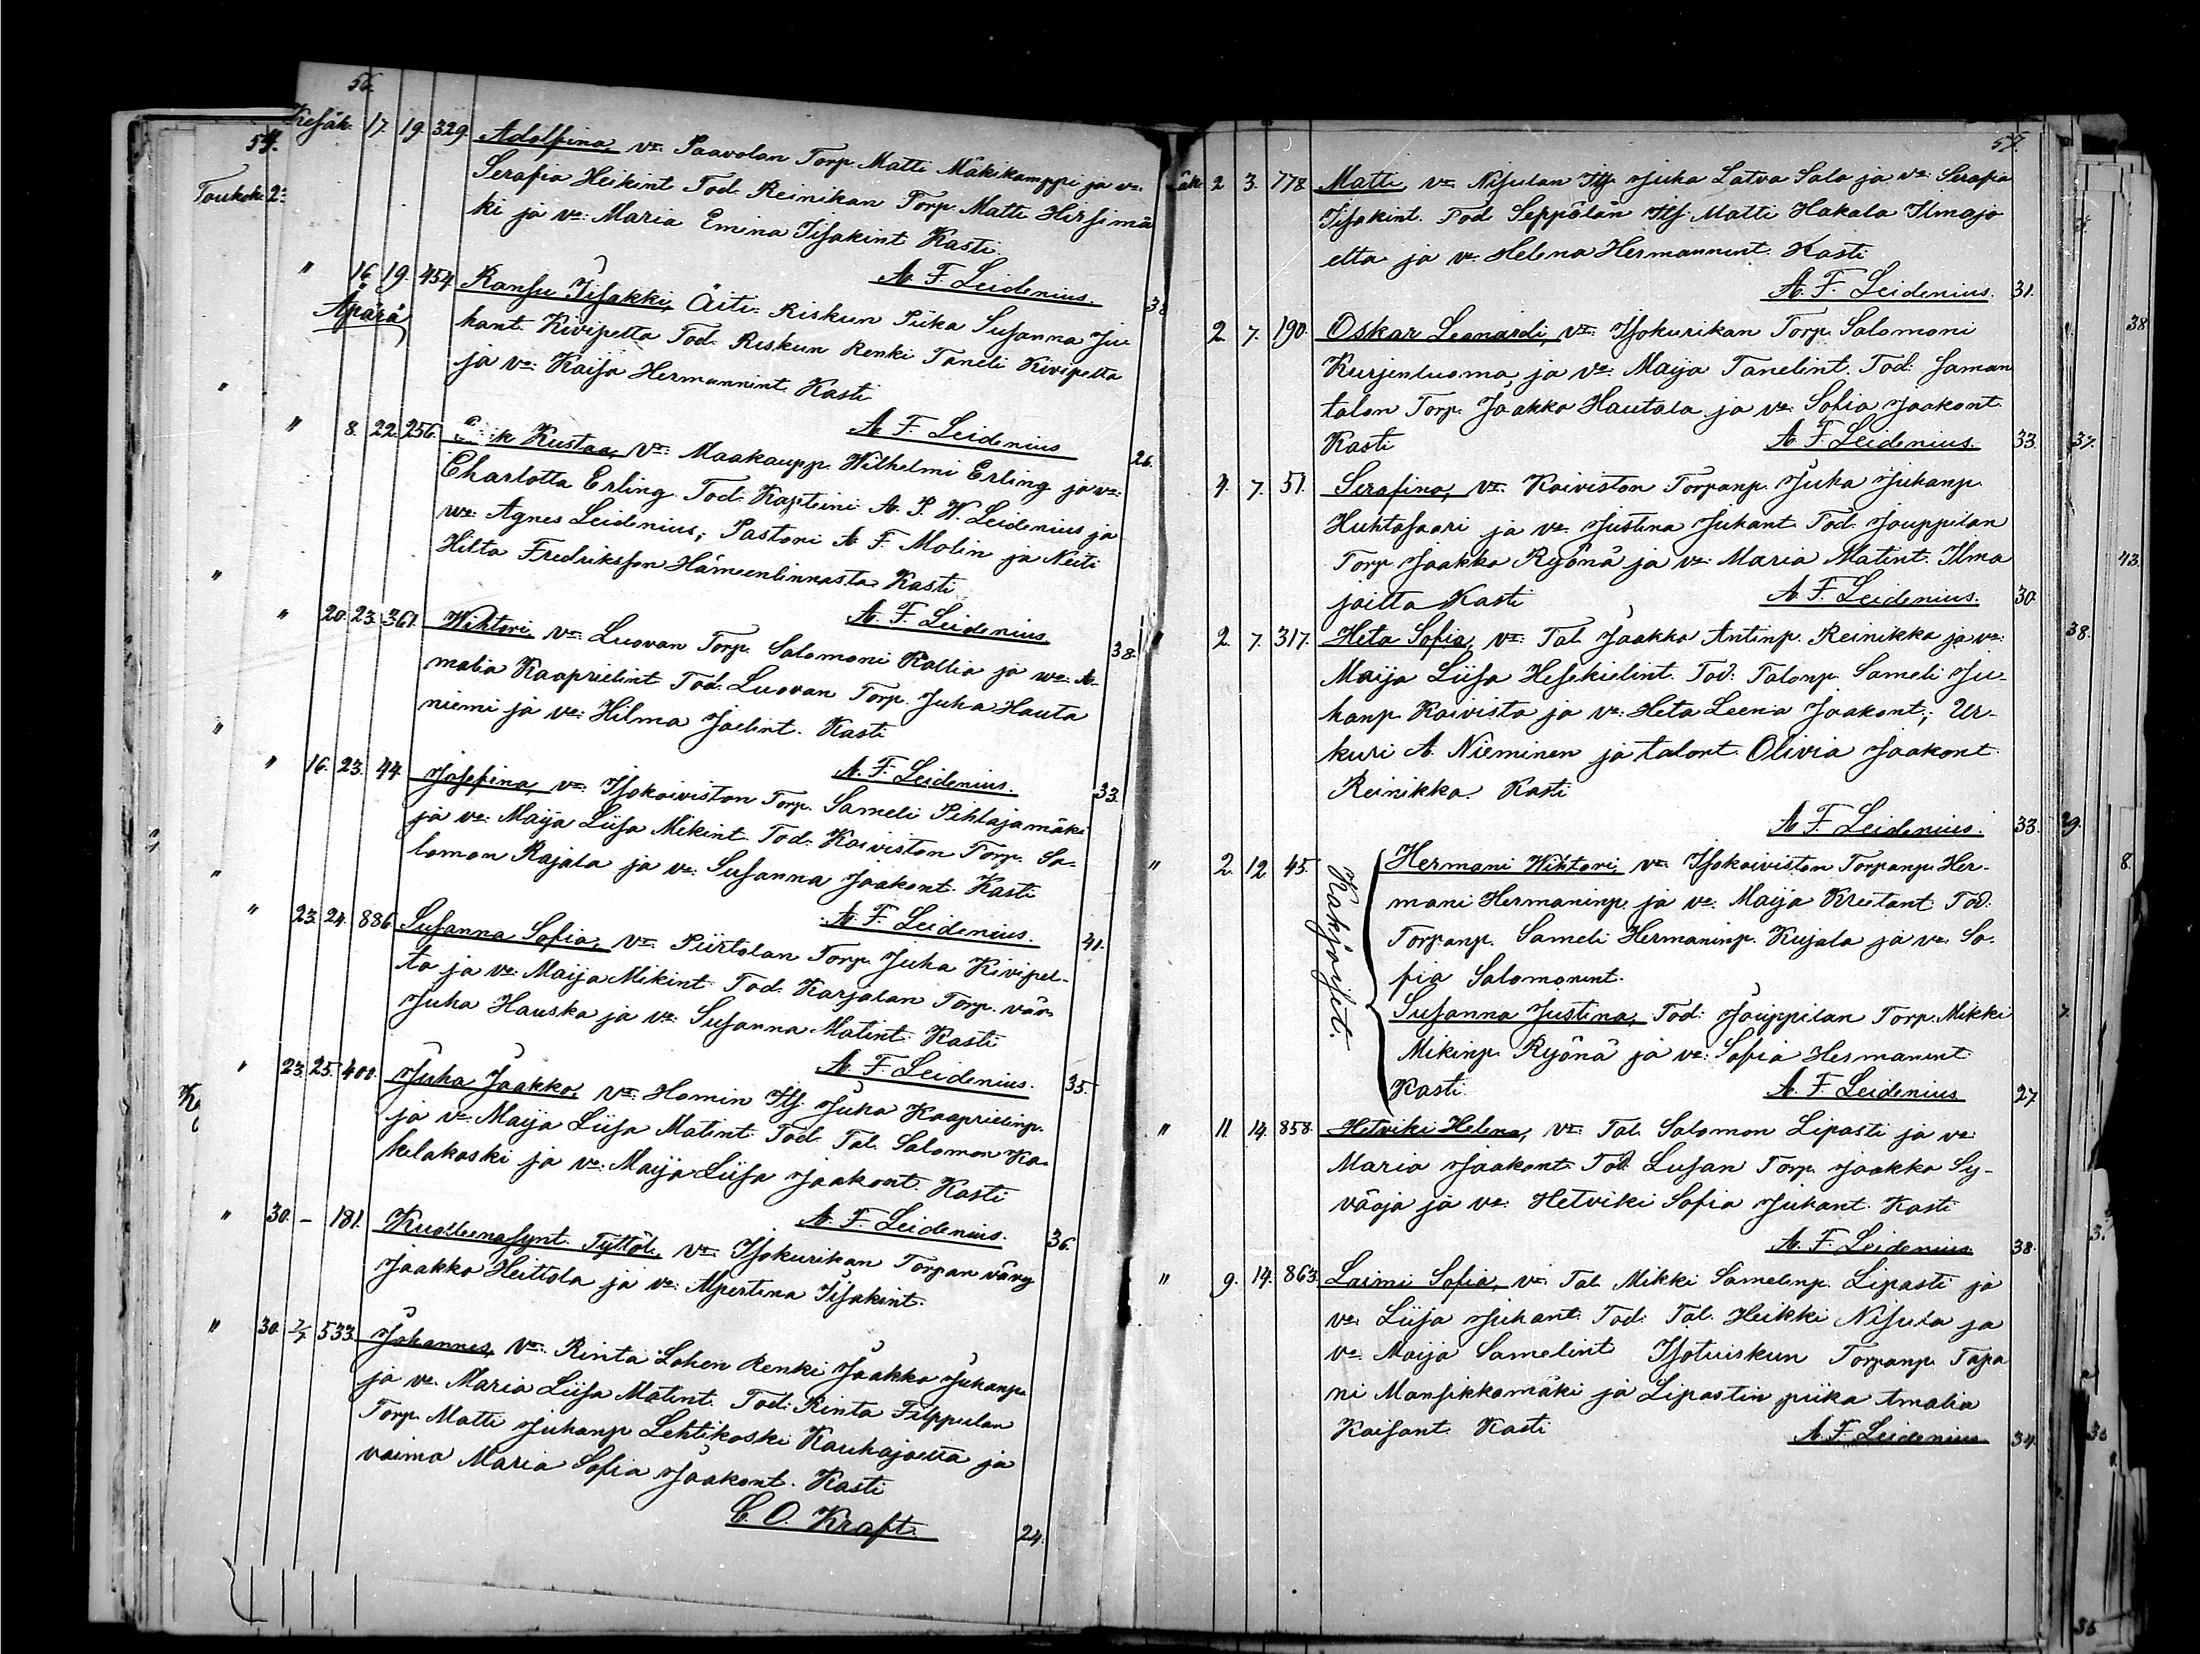 56.
Kesäk. 17. 19. 329. Adolfina, vr: Paavolan Torp. Matti Mäkikamppi ja vo.
Serafia Heikint. Tod. Reinikan Torp. Matti Hirsimä
ki ja vo: Maria Emina Iisakint. Kasti
A. F. Leidenius. 38
" 16. 19. 454. Ransu Iisakki, Äiti: Riskun Piika Susanna Ju-
Äpärä
hant. Kivipelto Tod. Riskun Renki Taneli Kivipelto
ja vo: Kaisa Hermannint. Kasti
A. F. Leidenius 26.
" 8. 22. 256. Kustaa, vr: Maakaupp. Wilhelmi Erling ja vo:
Charlotta Erling. Tod. Kapteini A. P. W. Leidenius ja
wo: Agnes Leidenius, Pastori A. F. Molin ja Neiti
Hilta Fredriksson Hämeenlinnasta Kasti
A. F. Leidenius 38.
" 20. 23. 361. Wihtori, vr: Luovan Torp. Salomoni Kallio ja wo: A-
malia Kaaprielint. Tod. Luovan Torp. Juha Hauta
niemi ja vo: Hilma Joelint. Kasti
A. F. Leidenius. 33.
" 16. 23. 44. Josefina, vr: Isokoiviston Torp. Sameli Pihlajamäki
ja vo: Maija Liisa Mikint. Tod. Koiviston Torp. Sa-
lomon Rajala ja vo: Susanna Jaakont. Kasti
A. F. Leidenius. 41.
" 23. 24. 886. Susanna Sofia, vr: Piirtolan Torp. Juha Kivipel-
to ja vo: Maija Mikint. Tod. Karjalan Torp. väv.
Juha Hauska ja vo: Susanna Matint. Kasti
A. F. Leidenius. 35.
" 23. 25. 400. Juha Jaakko, vr: Homin Its. Juha Kaaprielinp.
ja vo: Maija Liisa Matint. Tod. Tal. Salomon Ko-
kelakoski ja vo: Maija Liisa Jaakont. Kasti
A. F. Leidenius. 36.
" 30. – 181. Kuolleenasynt. Tyttöl., vr: Isokurikan Torpan vävy
Jaakko Heittola ja vo: Alpertina Iisakint.
" 30. 2/7 533. Johannes, vr: Rinta Lohen Renki Jaakko Juhanp.
ja vo: Maria Liisa Matint. Tod. Rinta Filppulan
Torp. Matti Juhanp. Lehtikoski Kauhajoelta ja
vaimo Maria Sofia Jaakont. Kasti
C. O. Kraft. 24.
57.
2 3. 778 Matti vr: Nisulan Its. Juha Latva Sala ja vo: Serafia
Iisakint. Tod. Seppälän Its. Matti Hakala Ilmajo
elta ja vo: Helena Hermannint. Kasti
A. F. Leidenius. 31.
2. 7. 190. Oskar Leonardi, vr: Isokurikan Torp. Salomoni
Kurjenluoma, ja vo: Maija Tanelint. Tod: Saman
talon Torp. Jaakko Hautala ja vo: Sofia Jaakont.
Kasti A. F. Leidenius. 33.
4. 7. 51. Serafina, vr: Koiviston Torpanp. Juha Juhanp.
Huhtasaari ja vo: Justina Juhant. Tod. Jouppilan
Torp Jaakko Ryönä ja vo: Maria Matint. Ilma
joilta Kasti A. F. Leidenius. 30.
" 2. 7. 317. Heta Sofia, vr: Tal. Jaakko Antinp. Reinikka ja vo:
Maija Liisa Hesekielint. Tod: Talonp. Sameli Ju-
hanp. Koivisto ja vo: Heta Leena Jaakont; Ur-
kuri A. Nieminen ja talont. Olivia Jaakont.
Reinikka. Kasti
A. F. Leidenius. 33.
" 2. 12 45. Kakjoiset. Hermani Wihtori, vr: Isokoiviston Torpanp. Her-
mani Hermaninp. ja vo: Maija Kreetant. Tod.
Torpanp. Sameli Hermaninp. Kujala ja vo: So-
fia Salomonint.
Susanna Justina, Tod: Jouppilan Torp. Mikki
Mikinp. Ryönä ja vo: Sofia Hermanint.
Kasti. A. F. Leidenius 27.
" 11 14. 858. Hetviki Helena, vr: Tal. Salomon Lipasti ja vo:
Maria Jaakont. Tod. Lusan Torp. Jaakko Sy-
väoja ja vo: Hetviki Sofia Juhant. Kasti
A. F. Leidenius 38.
" 9. 14. 863. Laimi Sofia, vr: Tal. Mikki Samelinp. Lipasti ja
vo: Liisa Juhant. Tod. Tal. Heikki Nisula ja
vo: Maija Samelint. Isotuiskun Torpanp. Tapa
ni Mansikkamäki ja Lipastin piika Amalia
Kaisant. Kasti A. F. Leidenius 34.
54.
Toukok. 2
38
37.
43.
38.
29.
8.
7.